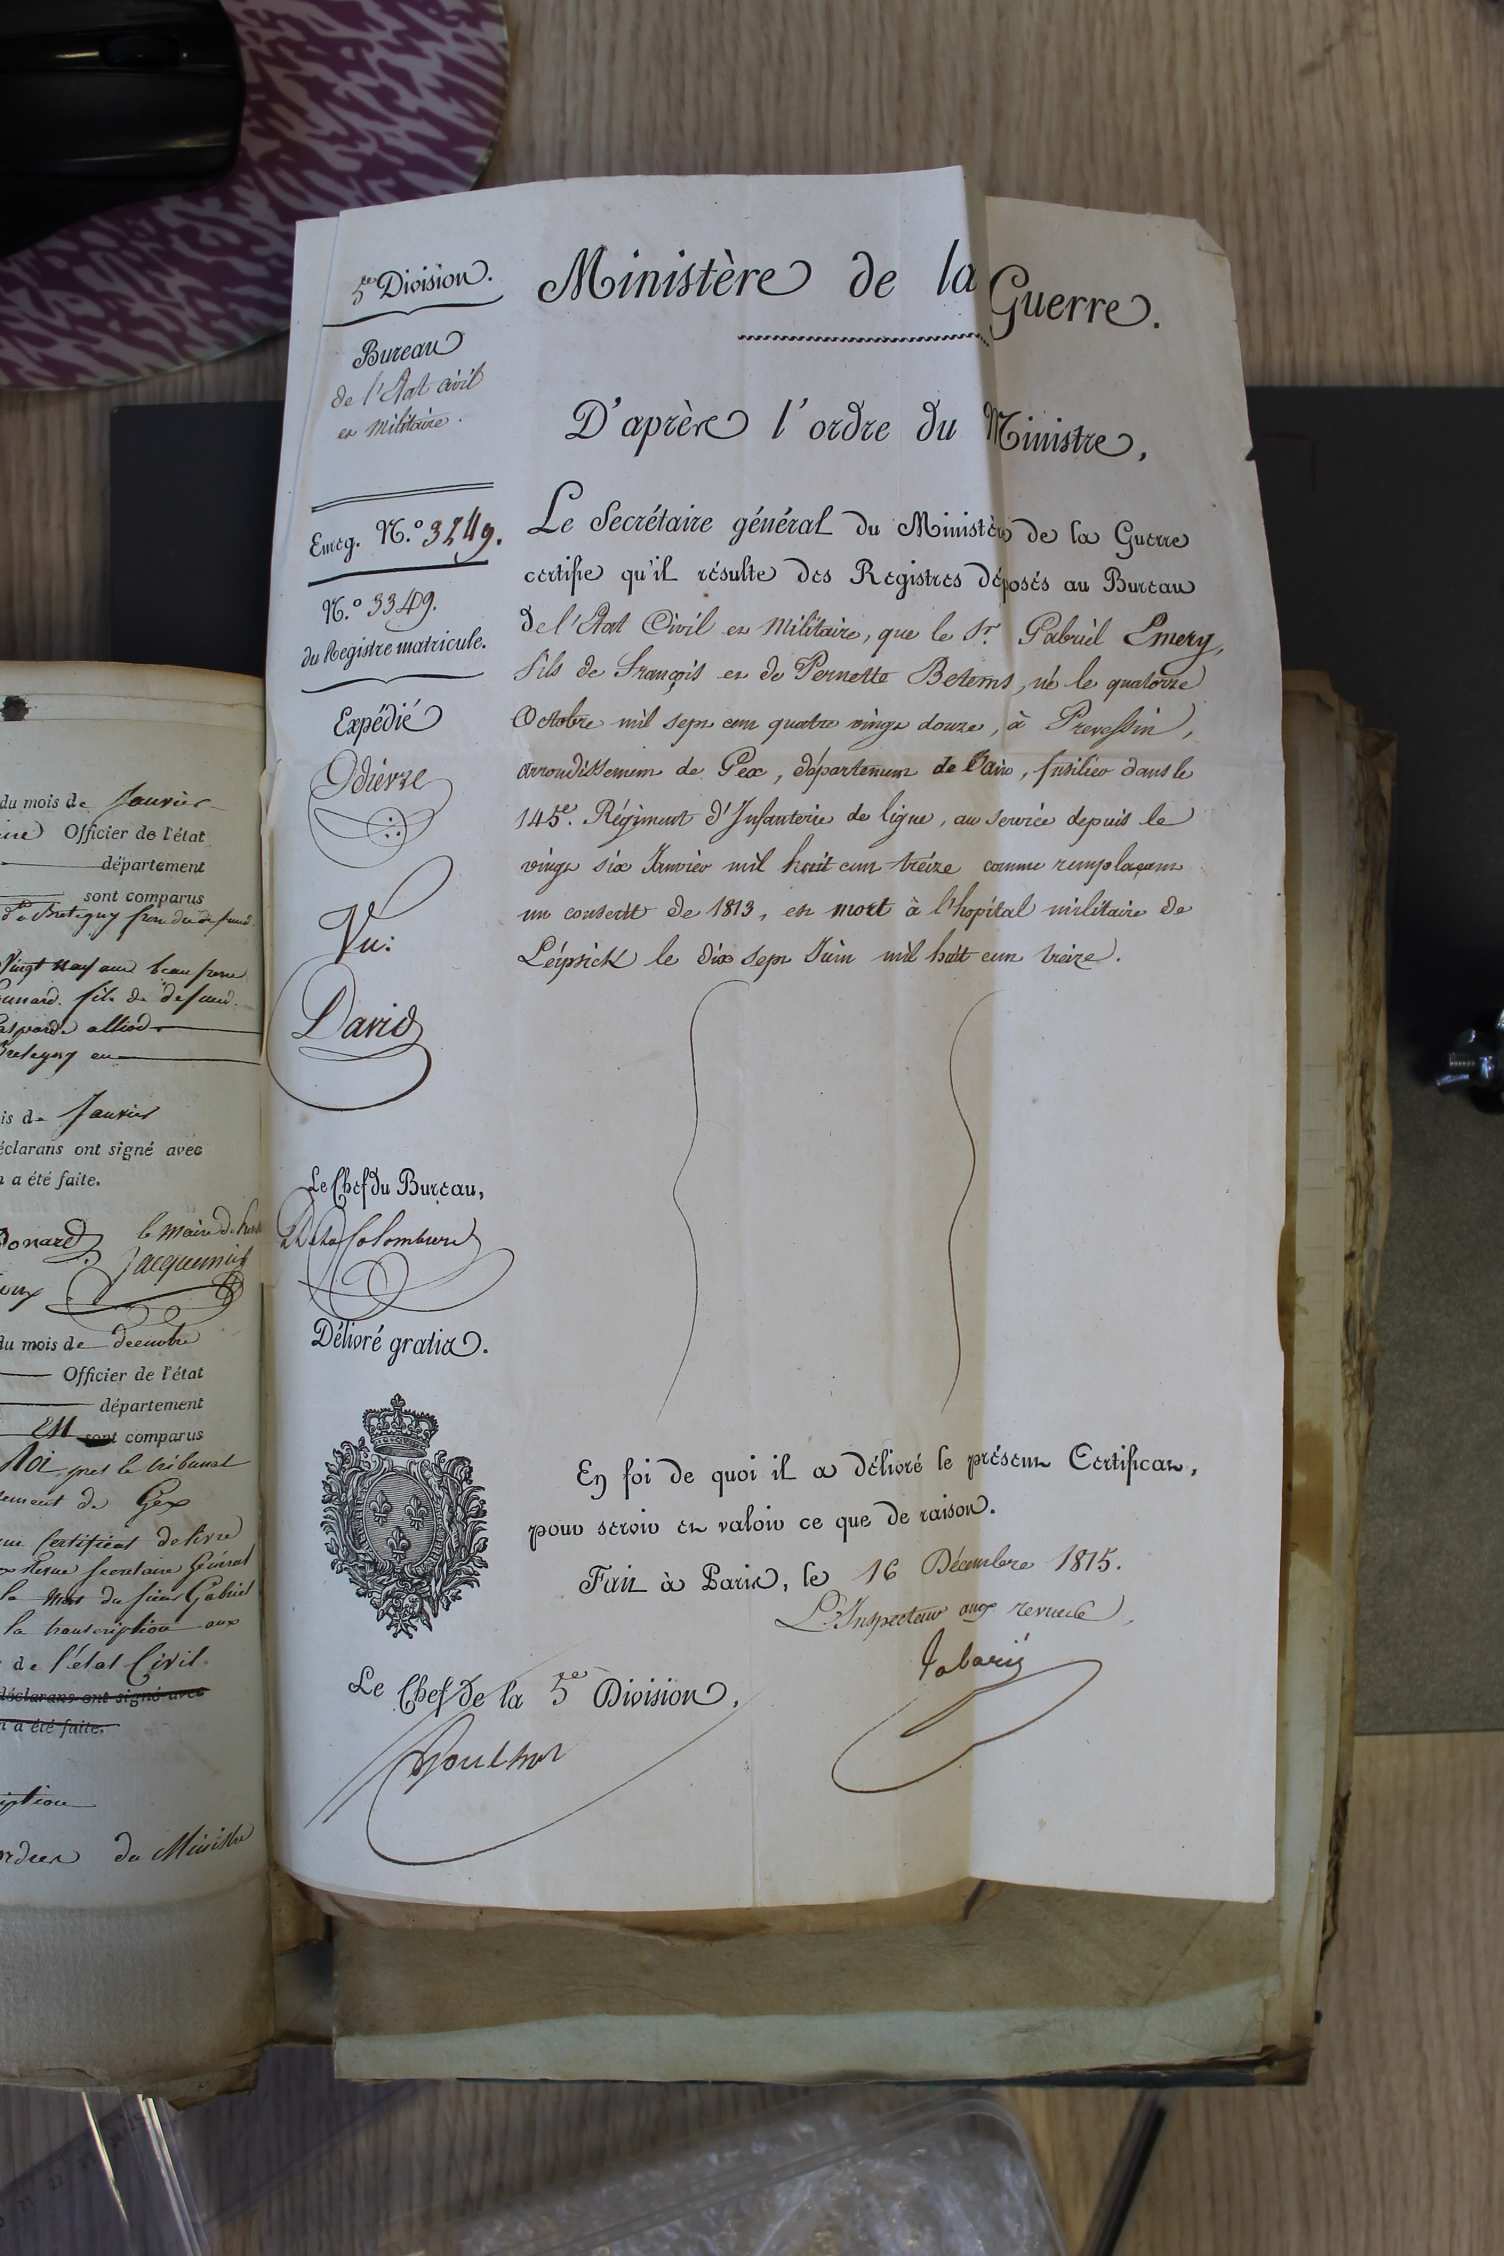 du mois de Janvier
Officier de l'état
département
sont comparus
de Bretigny
Vingt neuf ans beau frere
fils de defunt
allied
Bretigny en
is de Janvier
éclarans ont signé avec
n a été faite.
le Maire
Jacquemier
du mois de decembre
Officier de l'état
département
sont comparus
Roi pres le tribunal
ement de Gex
Certificat delivré
Secretaire Général
la Mort du sieur Gabriel
la transcription aux
de l'état Civil.
déclarans ont signé avec
n a été faite.
iption
ordres du Ministre
5.e Division.
Bureau
de l'Etat civil
et militaire.
Enreg. N.o 3249.
N.o 3349.
du Registre matricule.
Expédié
Odierre
Vu:
David
Le Chef du Bureau,
De la Colombiere
Délivré gratis.
Ministère de la Guerre.
D'après l'ordre du Ministre,
Le Secrétaire général du Ministère de la Guerre
certifie qu'il résulte des Registres déposés au Bureau
de l'Etat Civil et Militaire, que le Sr. Gabriel Emery,
fils de François et de Pernette Betems, né le quatorze
Octobre mil sept cent quatre vingt douze, à Prevessin,
arrondissement de Gex, département de l'Ain, fusilier dans le
145e. Régiment d'Infanterie de ligne, au service depuis le
vingt six Janvier mil huit cent treize comme remplaçant
un conscrit de 1813, est mort à l'hopital militaire de
Leipsick le dix sept Juin mil huit cent treize.
En foi de quoi il a délivré le présent Certificat,
pour servir et valoir ce que de raison.
Fait à Paris, le 16 Décembre 1815.
L'Inspecteur aux revues,
Tabarié
Le Chef de la 5e Division,